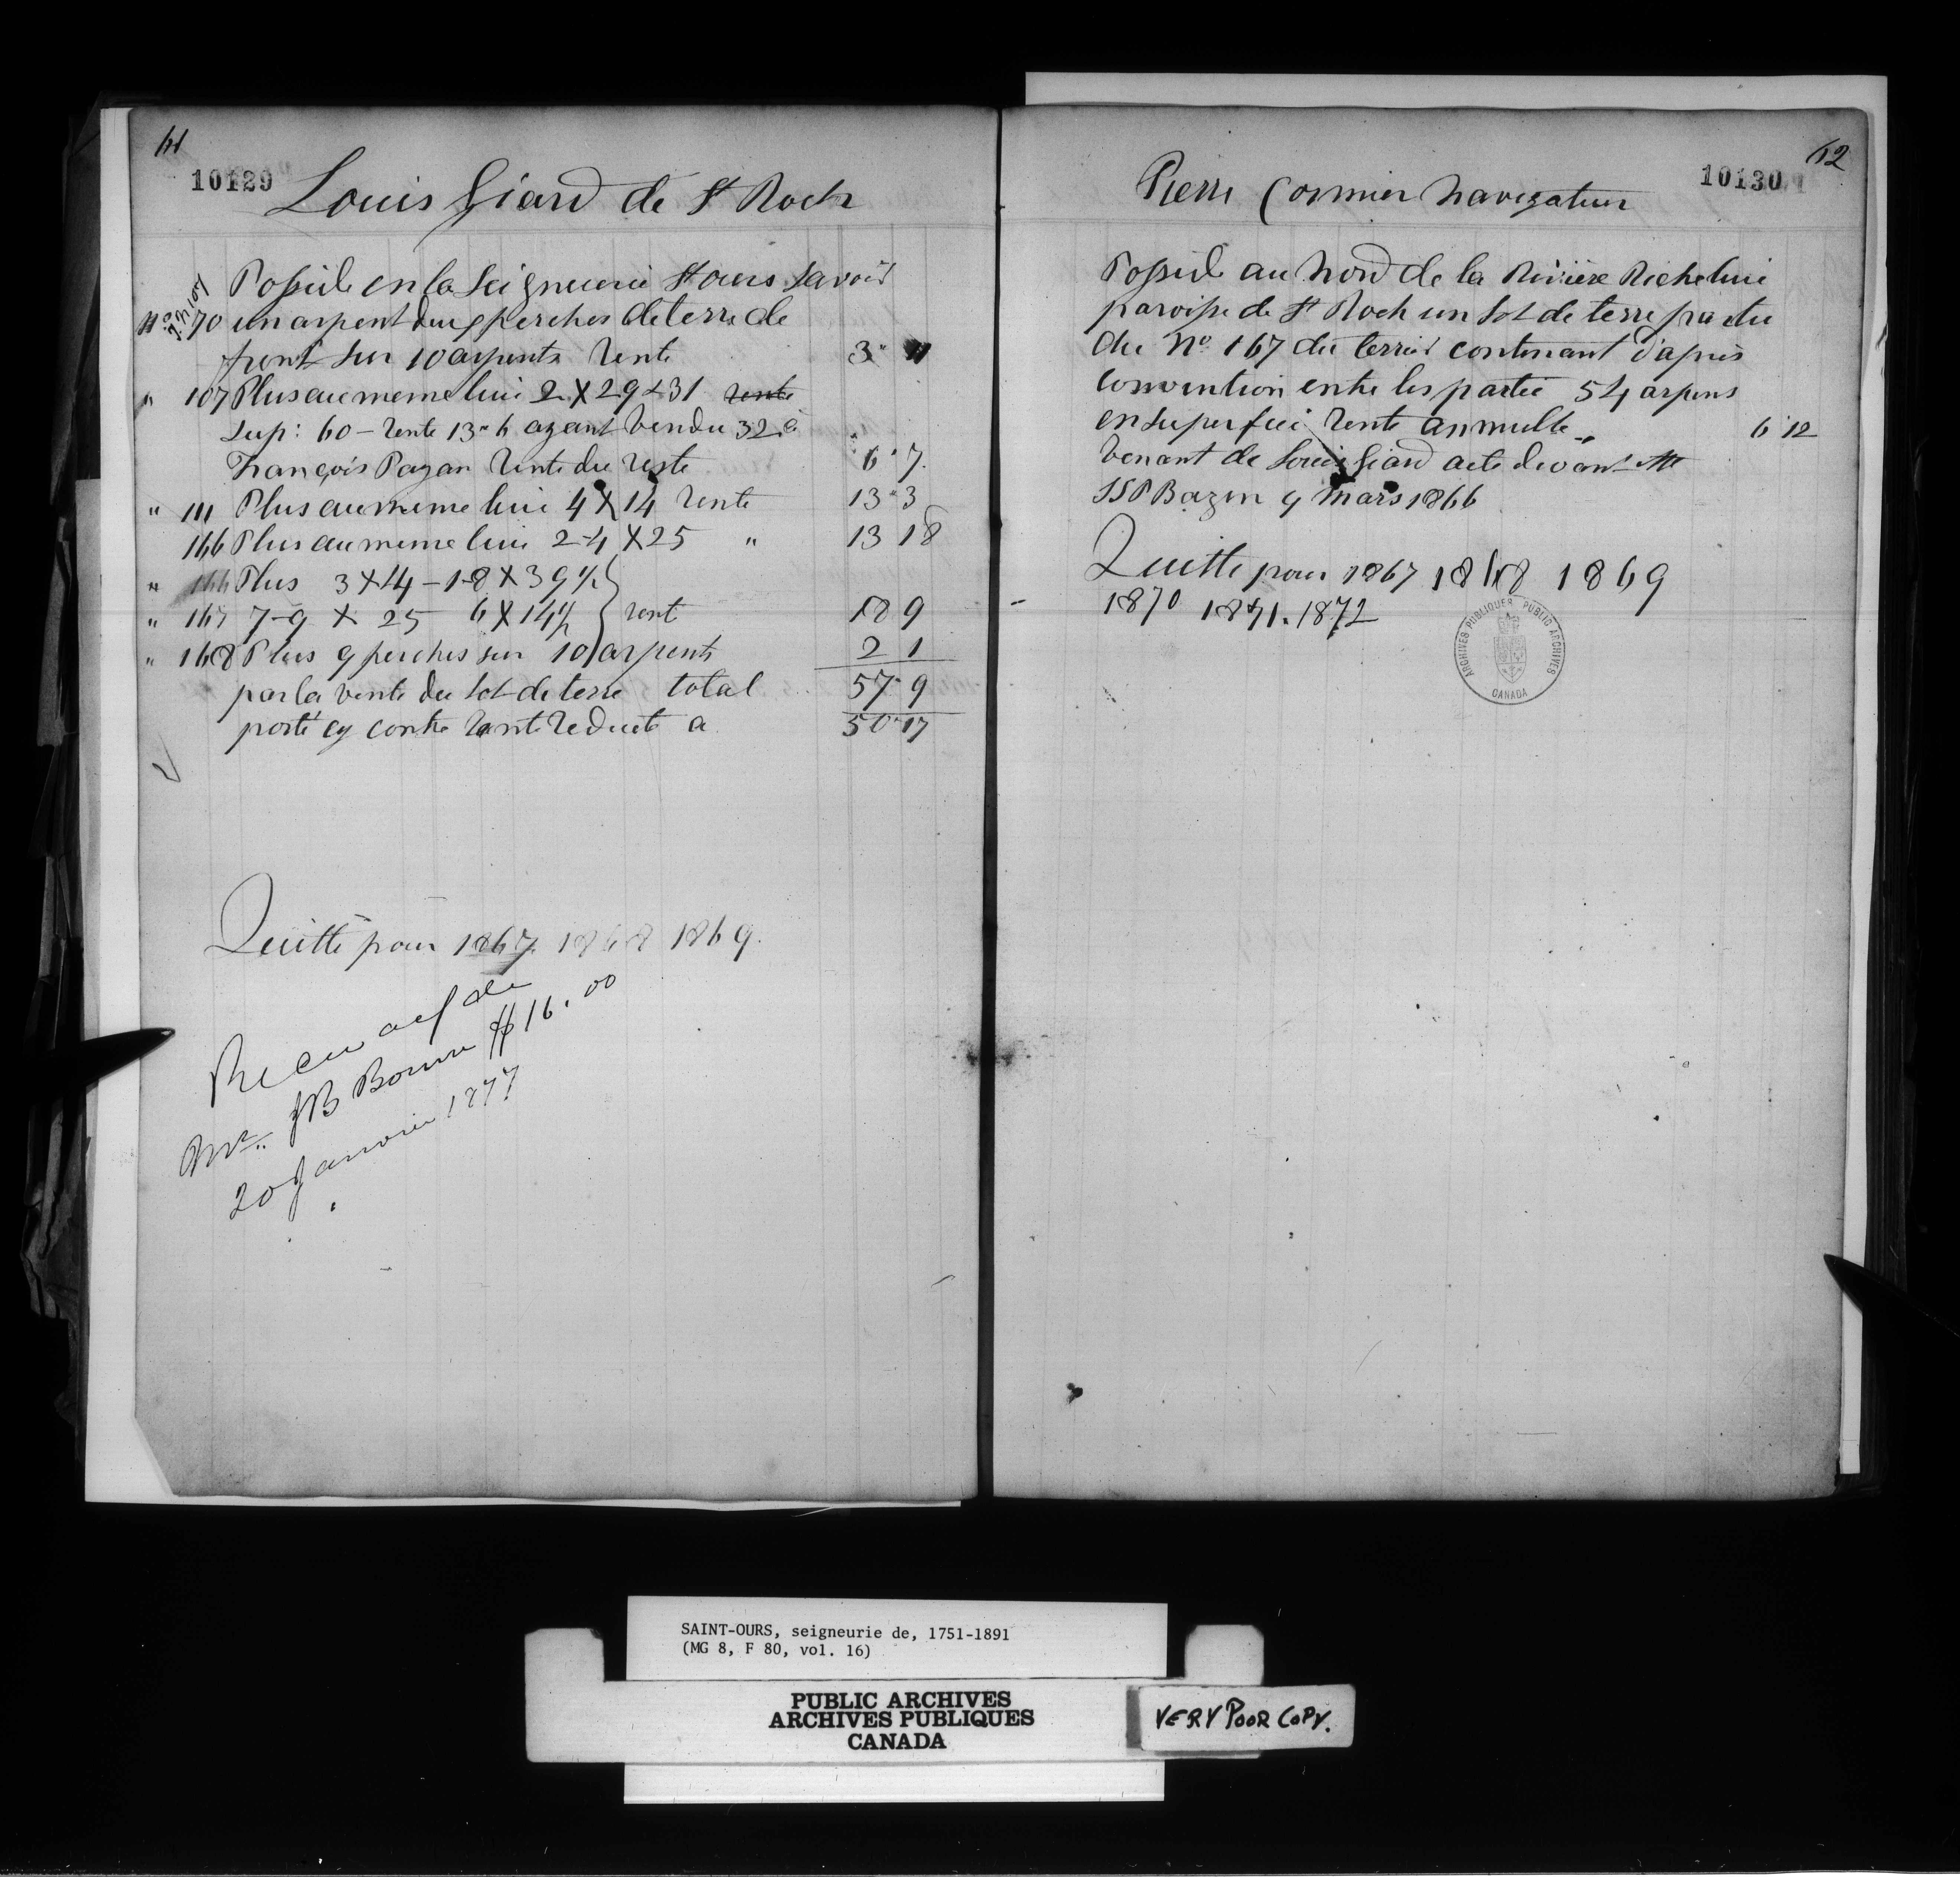 61
10129
Louis Giard de St Roch
Possede en la Seigneurie St Ours Savoir
No 70 un arpent deux perches de terre de
front sur 10 arpents rente 3 " 11
" 107 Plus au meme lieu 2 X 29 & 31 rente
Sup: 60 - rente 13 " 6 ayant vendu 32 à
François Pazan rente du reste 6 " 7
" 111 Plus au meme lieu 4 X 14 rente 13 " 3
166 Plus au meme lieu 2-4 X 25 " 13 18
" 166 Plus 3 X 14 - 1-8 X 39 ½
" 167 7-9 X 25 6 X 14½ } rent 18 9
" 168 Plus 9 perches sur 10 arpents 2 1
par la vente du lot de terre total 57 " 9
porté cy contre rente reduite a 50 " 17
Quitte pour 1867. 1868 1869.
Recu de
Mr. JB Bonin $16.00
20 Janvier 1877
62
10130
Pierre Cormier Navigateur
Possede au Nord de la Rivière Richelieu
paroisse de St Roch un lot de terre partie
du No 167 du terrier contenant d'après
convention entre les partie 54 arpens
en superficie rente annuelle 6 12
Venant de Louis Giard acte devant Mtre
JSP Bazin 9 Mars 1866
Quitte pour 1867 1868 1869
1870 1871. 1872
ARCHIVES PUBLIQUES PUBLIC ARCHIVES
CANADA
SAINT-OURS, seigneurie de, 1751-1891
(MG 8, F 80, vol. 16)
PUBLIC ARCHIVES
ARCHIVES PUBLIQUES
CANADA
VERY POOR COPY.